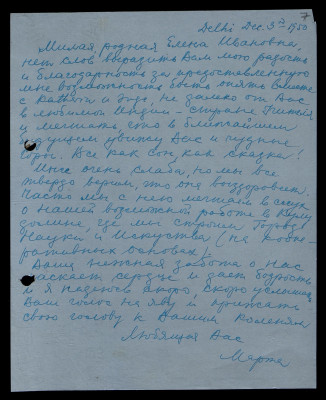 7
Delhi Dec. 3d 1950
Милая, родная Елена Ивановна,
нет слов выразить Вам мою радость
и благодарность за предоставленную
мне возможность быть опять вместе
с Кathrin и Эгд, не далеко от Вас
в любимой Индии - стране Учителя
и мечтать, что в ближайшем
будущем увижу Вас и чудные
горы. Все как сон, как сказка!
очень слаба, но мы все
твердо верим, что она выздоровеет.
Часто мы с нею мечтаем
о нашей возможной работе в Кулу
долине, где мы строим Город
Науки и Искусства (на коопе-
ративных основах).
Ваша нежная забота о нас
ласкает сердце и дает бодрость
и я надеюсь скоро, скоро услышать
Ваш голос на яву и прижать
свою голову к Вашим коленям
Любящая Вас
Марта